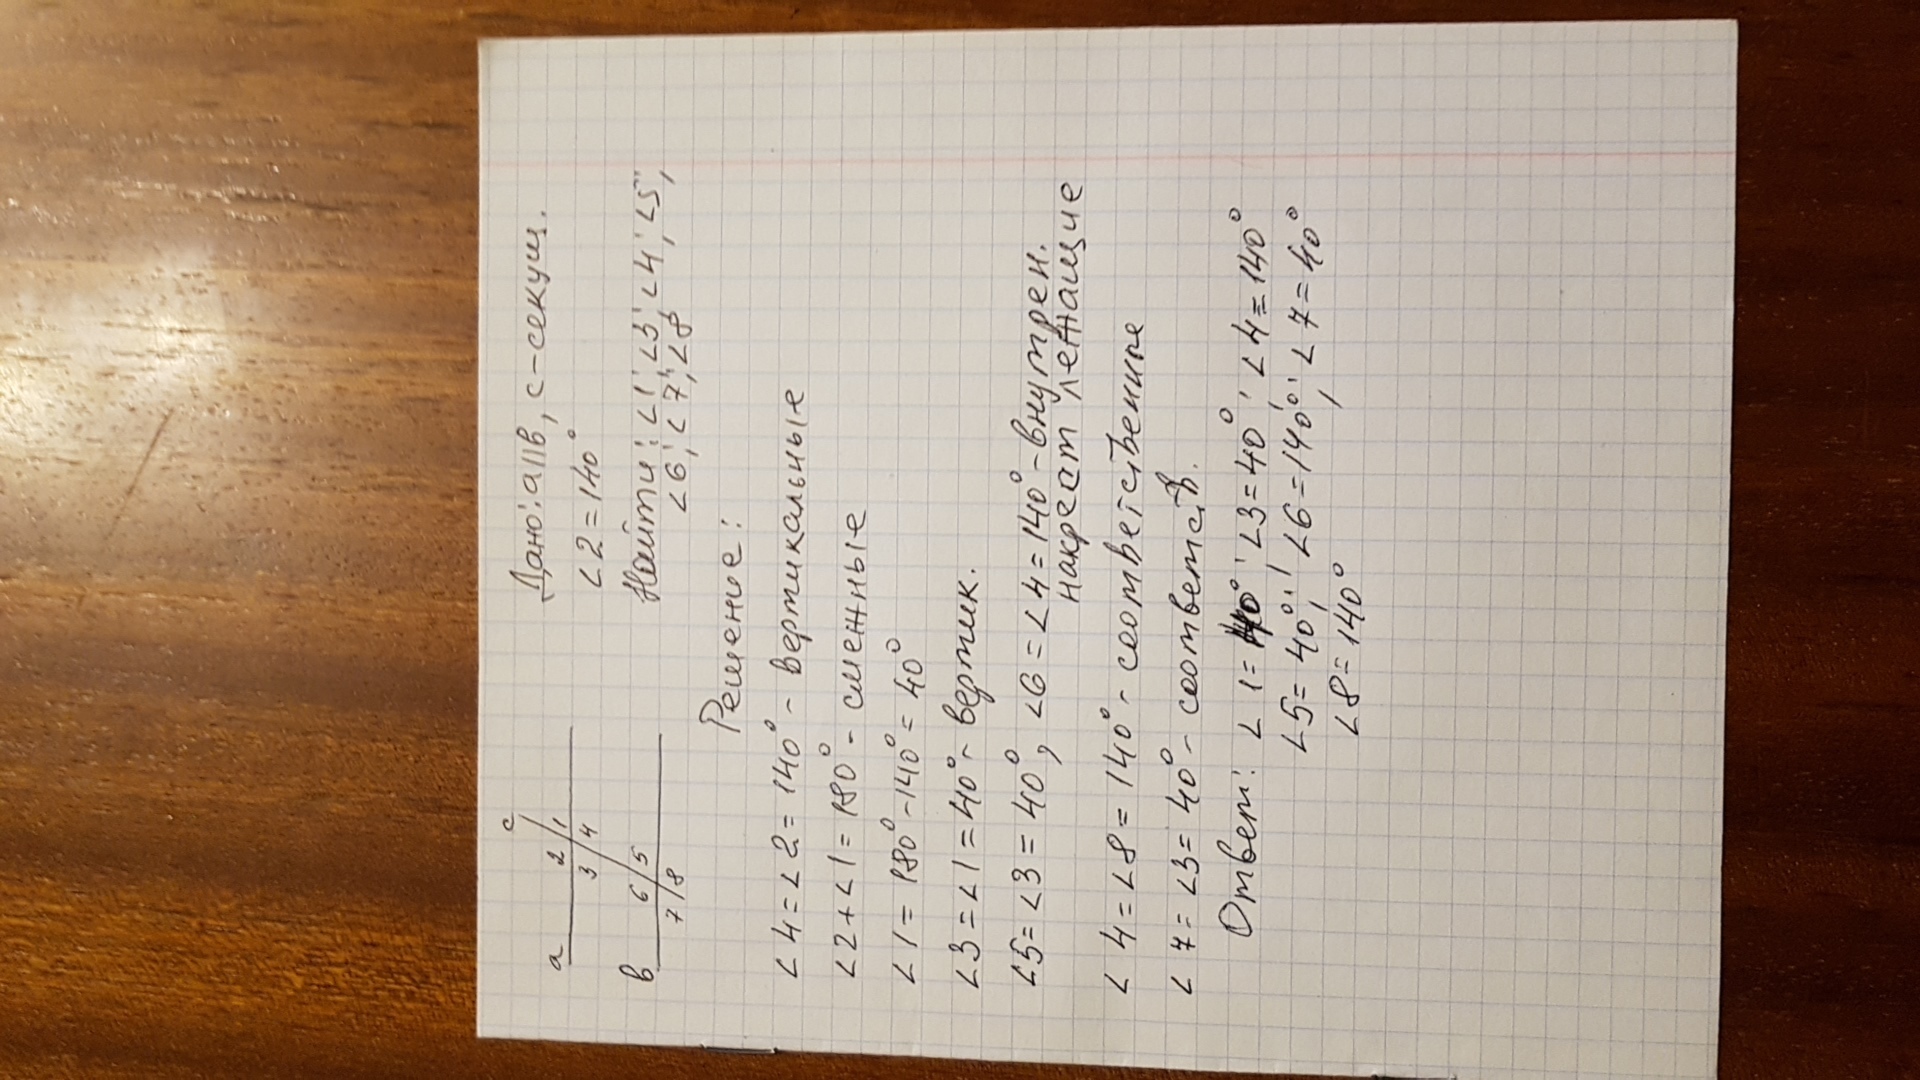 Дано: a||в, c-секущ.
∠2=140°
Найти: ∠1, ∠3, ∠4, ∠5,
∠6, ∠7, ∠8
c
a 2 1
3 4
в 6 5
7 8
Решение:
∠4=∠2=140° - вертикальные
∠2+∠1=180° - смежные
∠1=180°-140°=40°
∠3=∠1=40° - вертик.
∠5=∠3=40°, ∠6=∠4=140° - внутрен.
накрест лежащие
∠4=∠8=140° - соответственные
∠7=∠3=40° - соответств.
Ответ: ∠1=40°, ∠3=40°, ∠4=140°
∠5=40°, ∠6=140°, ∠7=40°
∠8=140°